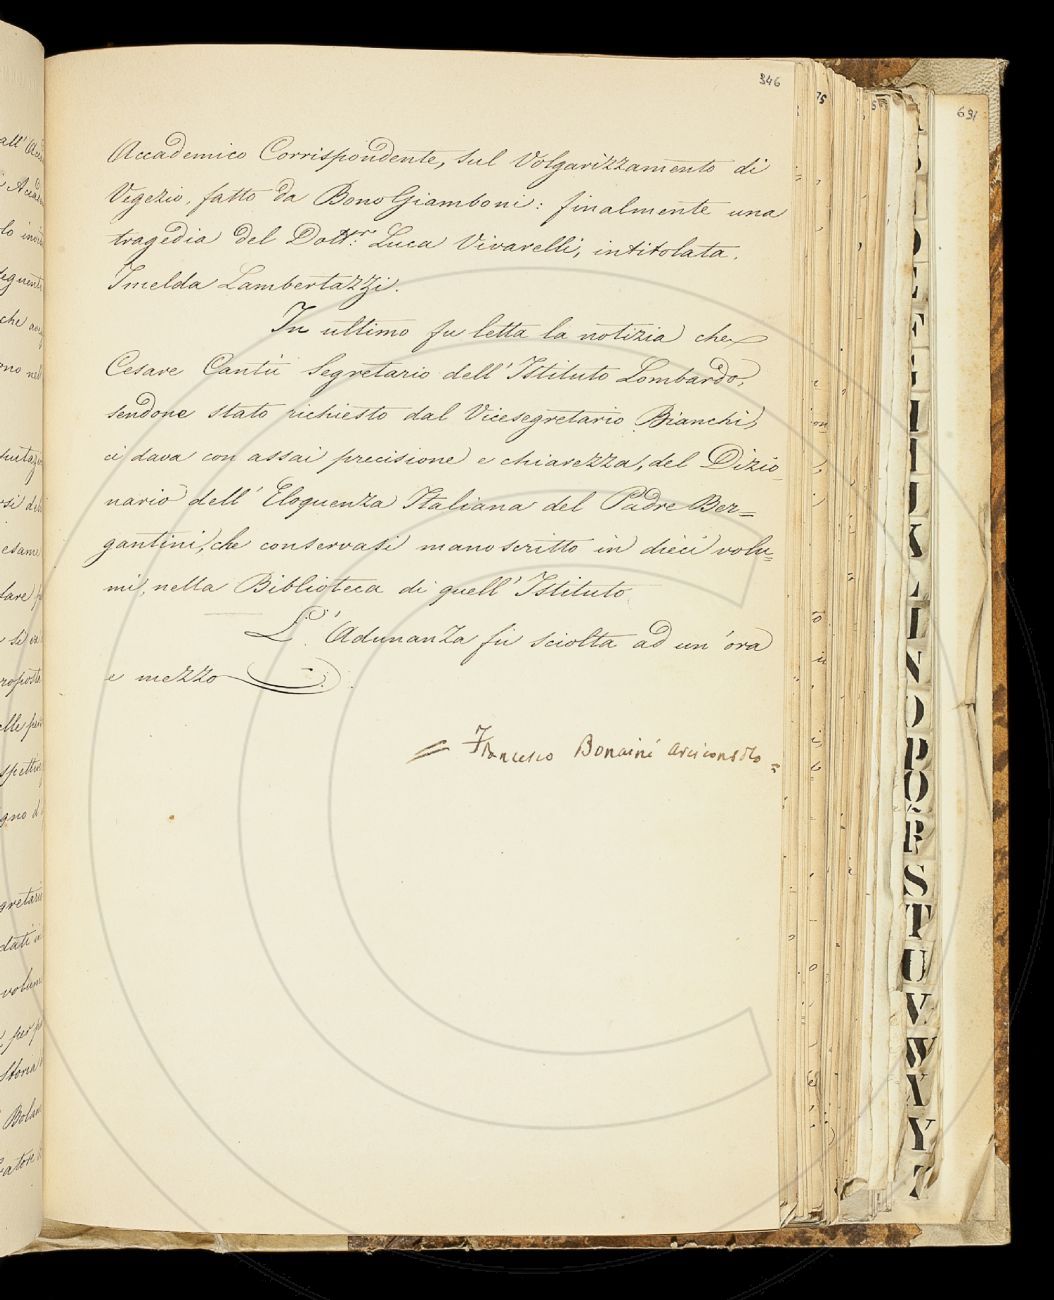 346
Accademico Corrispondente, sul Volgarizzamento di
Vegezio, fatto da Bono Giamboni: finalmente una
tragedia del Dott.r Luca Vivarelli, intitolata.
Imelda Lambertazzi.
In ultimo fu letta la notizia che
Cesare Cantù Segretario dell'Istituto Lombardo,
sendone stato richiesto dal Vicesegretario Bianchi,
ci dava con assai precisione e chiarezza, del Dizio
nario dell'Eloquenza Italiana del Padre Ber=
gantini, che conservasi manoscritto in dieci volu=
mi, nella Biblioteca di quell'Istituto
L'Adunanza fu sciolta ad un'ora
e mezzo
= Francesco Bonaini Arciconsolo =
691
D
E
F
G
I
J
K
L
N
O
P
Q
R
S
T
U
V
W
X
Y
Z